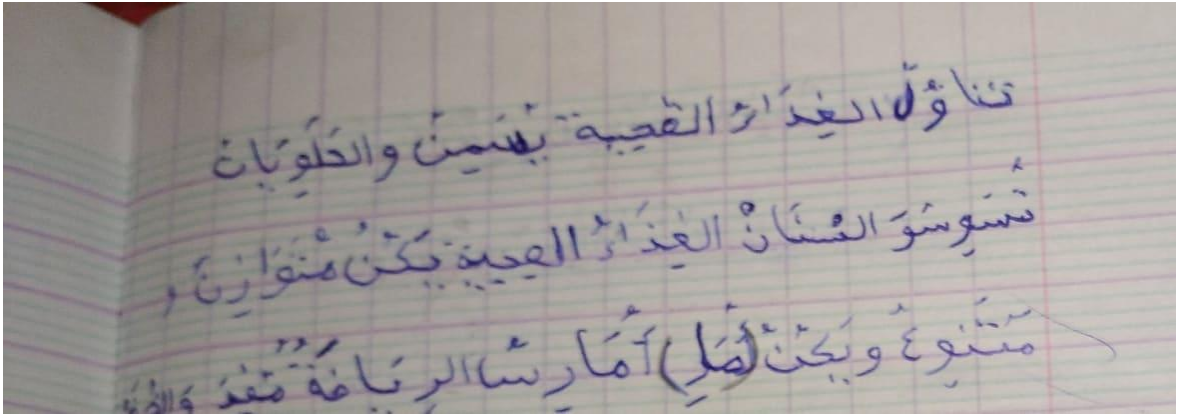 تناوُلُ الغِذَاءُ الصحية يُسَمِينُ والحَلَوِيَات
تُسَوِسُوَ السْنَانْ الغِذَاءُ الصحيية يَكُنُ مُتَوَازِنَ و
مُتَنَوِعُ ويَجُنْ (أَصَلِي) أُمَارِسُ الرِيَاضَةُ مُفِدَ